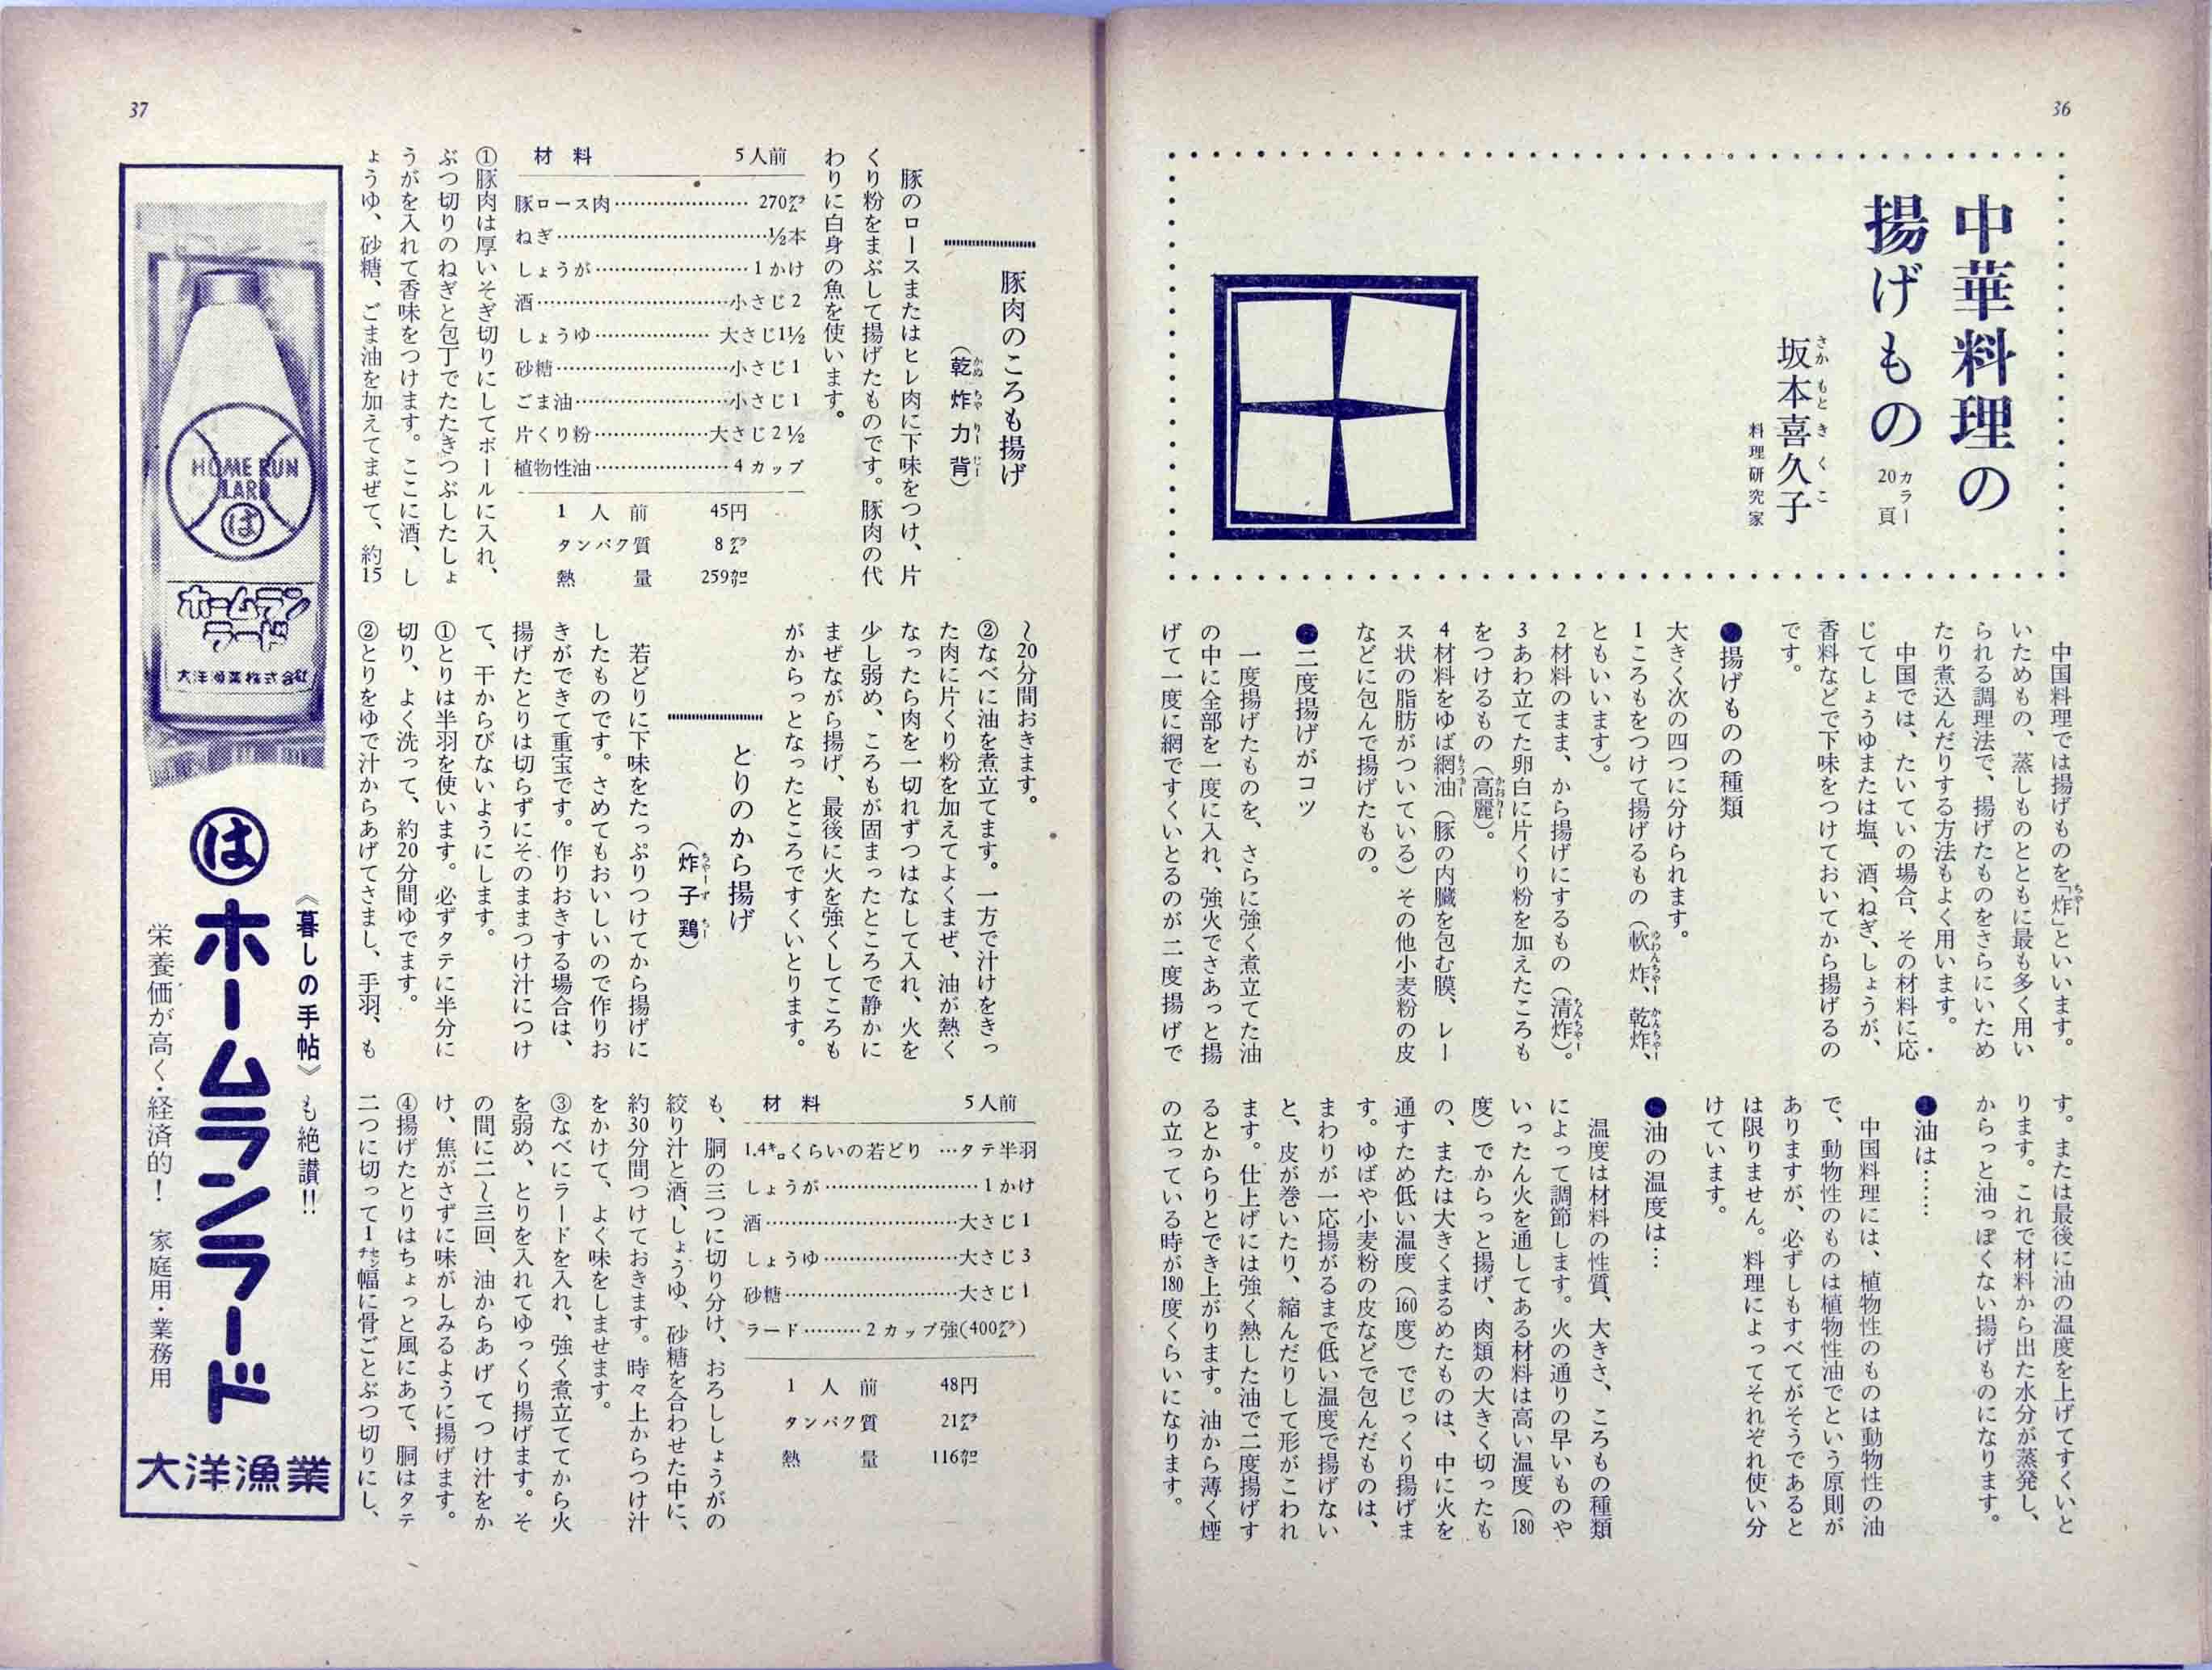 36
中華料理の
揚げもの
カラー
20頁
坂本喜久子
さかもときくこ
料理研究家
中国料理では揚げものを「炸」といいます。
いためもの、蒸しものとともに最も多く用い
られる調理法で、揚げたものをさらにいため
たり煮込んだりする方法もよく用います。
中国では、たいていの場合、その材料に応
じてしょうゆまたは塩、酒、ねぎ、しょうが、
香料などで下味をつけておいてから揚げるの
です。
●揚げものの種類
大きく次の四つに分けられます。
1ころもをつけて揚げるもの（軟炸、乾炸、
ともいいます）。
2材料のまま、から揚げにするもの（清炸）。
3あわ立てた卵白に片くり粉を加えたころも
をつけるもの（高麗）。
4材料をゆば網油（豚の内臓を包む膜、レー
ス状の脂肪がついている）その他小麦粉の皮
などに包んで揚げたもの。
●二度揚げがコツ
一度揚げたものを、さらに強く煮立てた油
の中に全部を一度に入れ、強火でさあっと揚
げて一度に網ですくいとるのが二度揚げで
す。または最後に油の温度を上げてすくいと
ります。これで材料から出た水分が蒸発し、
からっと油っぽくない揚げものになります。
●油は……
中国料理には、植物性のものは動物性の油
で、動物性のものは植物性油でという原則が
ありますが、必ずしもすべてがそうであると
は限りません。料理によってそれぞれ使い分
けています。
●油の温度は…
温度は材料の性質、大きさ、ころもの種類
によって調節します。火の通りの早いものや
いったん火を通してある材料は高い温度（180
度）でからっと揚げ、肉類の大きく切ったも
の、または大きくまるめたものは、中に火を
通すため低い温度（160度）でじっくり揚げま
す。ゆばや小麦粉の皮などで包んだものは、
まわりが一応揚がるまで低い温度で揚げない
と、皮が巻いたり、縮んだりして形がこわれ
ます。仕上げには強く熱した油で二度揚げす
るとからりとでき上がります。油から薄く煙
の立っている時が180度くらいになります。
37
豚肉のころも揚げ
（乾炸力背）
かぬちやりーじー
豚のロースまたはヒレ肉に下味をつけ、片
くり粉をまぶして揚げたものです。豚肉の代
わりに白身の魚を使います。
材料 5人前
豚ロース肉…………………270グラム
ねぎ…………………………½本
しょうが……………………1かけ
酒……………………………小さじ2
しょうゆ………………大さじ1½
砂糖…………………………小さじ1
ごま油………………………小さじ1
片くり粉………………大さじ2½
植物性油…………………4カップ
1人前 45円
タンパク質 8グラム
熱量 259カロリー
①豚肉は厚いそぎ切りにしてボールに入れ、
ぶつ切りのねぎと包丁でたたきつぶしたしょ
うがを入れて香味をつけます。ここに酒、し
ょうゆ、砂糖、ごま油を加えてまぜて、約15
〜20分間おきます。
②なべに油を煮立てます。一方で汁けをきっ
た肉に片くり粉を加えてよくまぜ、油が熱く
なったら肉を一切れずつはなして入れ、火を
少し弱め、ころもが固まったところで静かに
まぜながら揚げ、最後に火を強くしてころも
がからっとなったところですくいとります。
とりのから揚げ
（炸子鶏）
ちやーずちー
若どりに下味をたっぷりつけてから揚げに
したものです。さめてもおいしいので作りお
きができて重宝です。作りおきする場合は、
揚げたとりは切らずにそのままつけ汁につけ
て、干からびないようにします。
①とりは半羽を使います。必ずタテに半分に
切り、よく洗って、約20分間ゆでます。
②とりをゆで汁からあげてさまし、手羽、も
材料 5人前
1.4キロくらいの若どり…タテ半羽
しょうが……………………1かけ
酒…………………………大さじ1
しょうゆ…………………大さじ3
砂糖………………………大さじ1
ラード………2カップ強(400グラム)
1人前 48円
タンパク質 21グラム
熱量 116カロリー
も、胴の三つに切り分け、おろししょうがの
絞り汁と酒、しょうゆ、砂糖を合わせた中に、
約30分間つけておきます。時々上からつけ汁
をかけて、よく味をしませます。
③なべにラードを入れ、強く煮立ててから火
を弱め、とりを入れてゆっくり揚げます。そ
の間に二〜三回、油からあげてつけ汁をか
け、焦がさずに味がしみるように揚げます。
④揚げたとりはちょっと風にあて、胴はタテ
二つに切って1センチ幅に骨ごとぶつ切りにし、
HOME RUN
LARD
は
ホームラン
ラード
大洋漁業株式会社
《暮しの手帖》も絶讃!!
はホームランラード
栄養価が高く・経済的！ 家庭用・業務用
大洋漁業